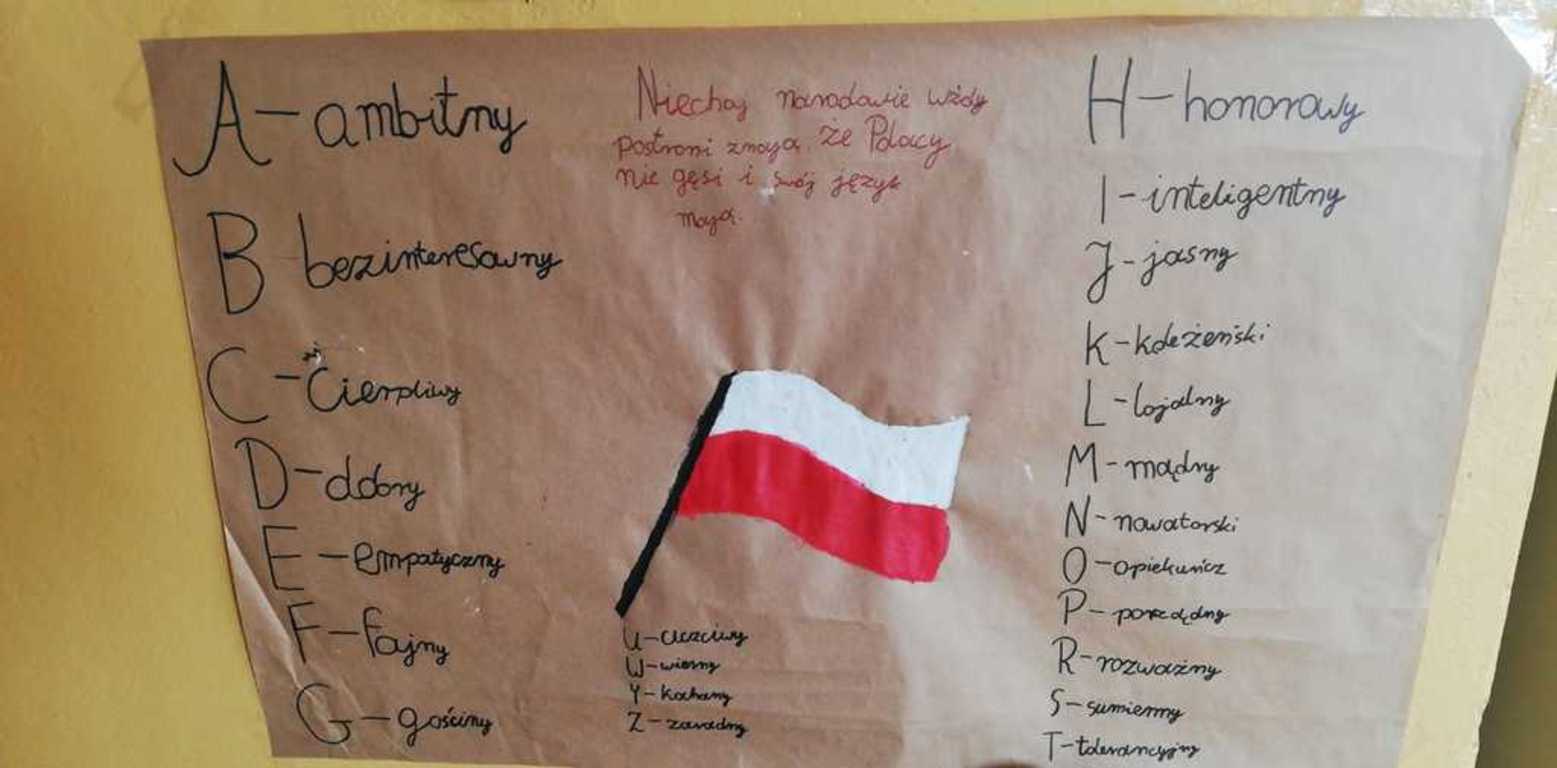 A - ambitny
B bezinteresowny
C - Cierpliwy
D - dobry
E - empatyczny
F - fajny
G - gościny
Niechaj narodowie wżdy
postroni znają, że Polacy
nie gęsi i swój język
mają.
U - uczciwy
W - wierny
Y - kochany
Z - zaradny
H - honorowy
I - inteligentny
J - jasny
K - koleżeński
L - lojalny
M - mądry
N - nowatorski
O - opiekuńcz
P - porządny
R - rozważny
S - sumienny
T - tolerancyjny